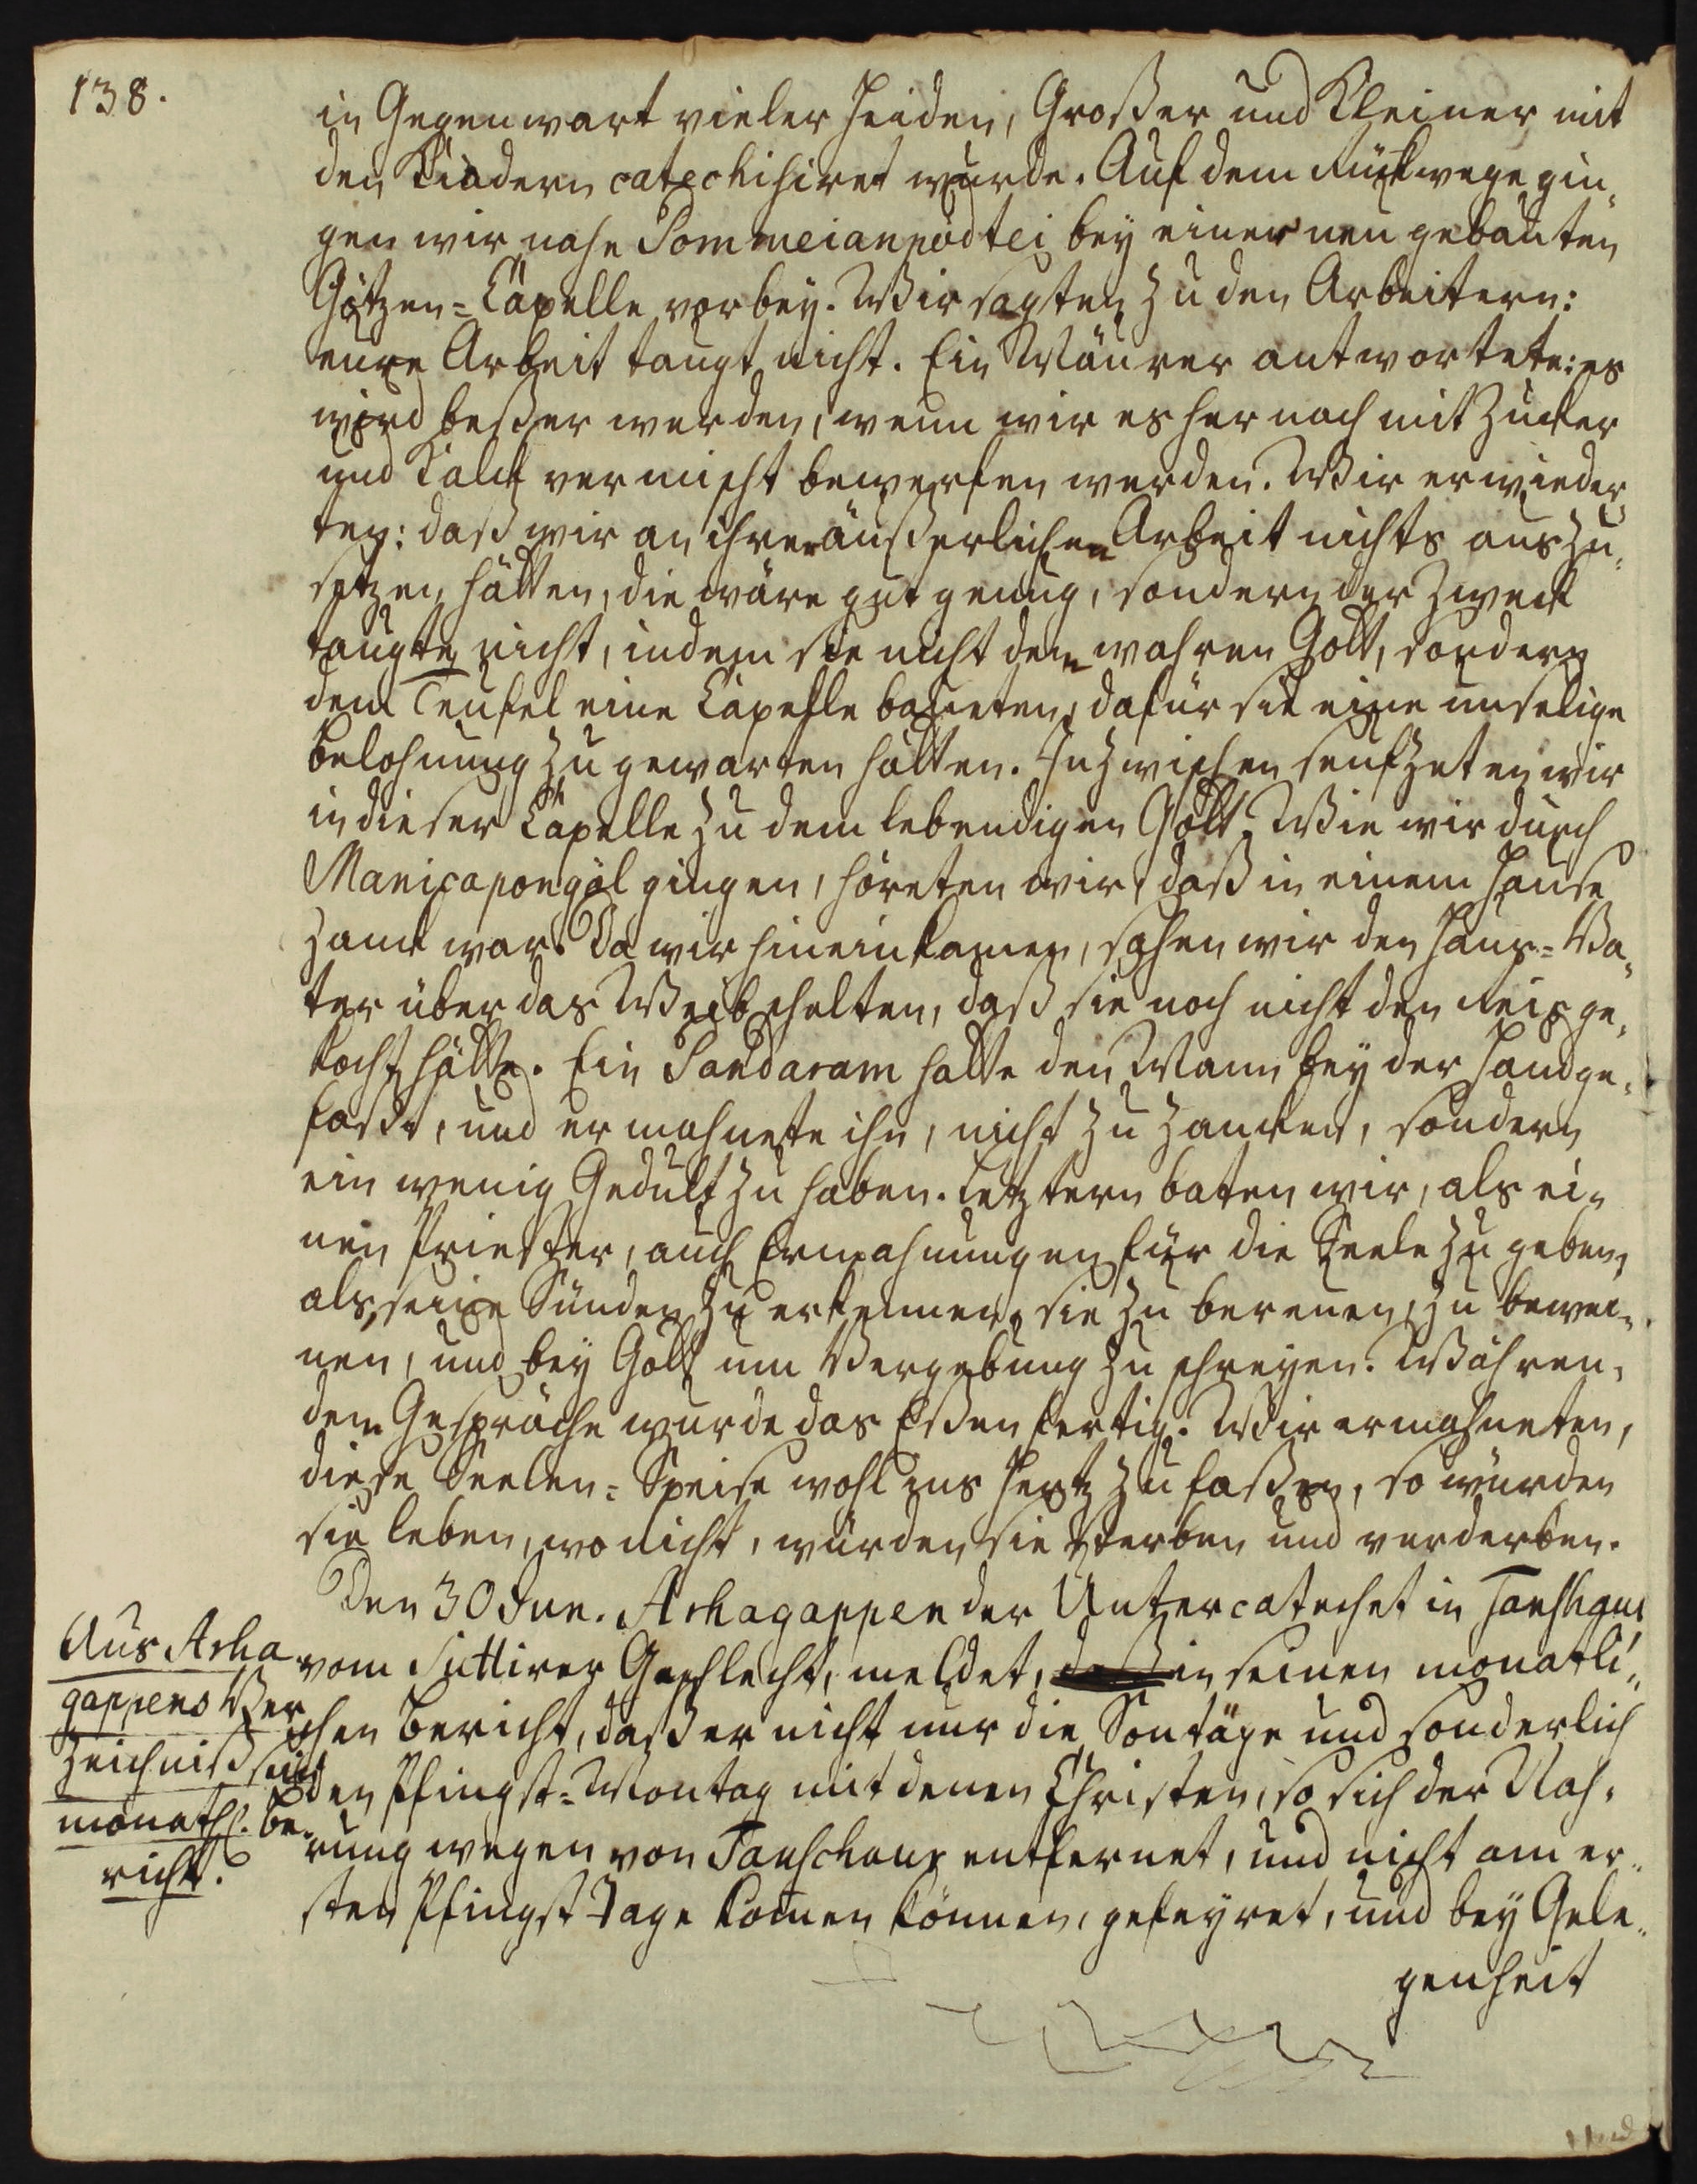 138.
in Gegenwart vieler Heiden, Großer und Kleiner mit
den Kindern catechisiret wurde. Auf dem Rückwege gin-
gen wir nahe Pommeianpödtei bey einer neu gebauten
Götzen=Capelle vorbey. Wir sagten zu den Arbeitern:
eure Arbeit taugt nicht. Ein Mäurer antwortete: es
wird beßer werden, wenn wir es hernach mit Zucker
und Kalck vermischt bewerfen werden. Wir erwieder-
ten: daß wir an ihrer äußerlichen Arbeit nichts auszu-
setzen hätten, die wäre gut genug, sondern der Zweck
taugte nicht, indem sie nicht dem wahren Gott, sondern
dem Teufel eine Capelle baueten, dafür sie eine unselige
Belohnung zu gewarten hätten. Inzwischen seufzeten wir
in dieser Capelle zu dem lebendigen Gott. Wie wir durch
Manicapongöl gingen, höreten wir, daß in einem Hause
Zanck war. Da wir hineinkamen, sahen wir den Haus=Va-
ter über das Weib schelten, daß sie noch nicht den Reis ge-
kocht hätte. Ein Pandaram hatte den Mann bey der Hand ge-
faßt, und ermahnete ihn, nicht zu zancken, sondern
ein wenig Gedult zu haben. Letztern baten wir, als ei-
nen Priester, auch Ermahnungen für die Seele zu geben,
als, seine Sünden zu erkennen, sie zu bereuen, zu bewei-
nen, und bey Gott um Vergebung zu schreyen. Währen-
dem Gespräche wurde das Eßen fertig. Wir ermahneten,
diese Seelen=Speise wohl ins Hertz zu faßen, so würden
sie leben, wo nicht, würden sie sterben und verderben.
Den 30 Jun. Arhagappen der Untercatechet in Tanschaur
vom Sittirer Geschlecht, meldet, daß in seinen monatli-
chen Bericht, daß er nicht nur die Sontäge und sonderlich
den Pfingst=Montag mit denen Christen, so sich der Nah-
rung wegen von Tanschaur entfernet, und nicht am er-
sten Pfingst Tage komen können, gefeyret, und bey Gele-
genheit
Aus Arha
gappens Ver
zeichniß sein
monathl. Be-
richt.